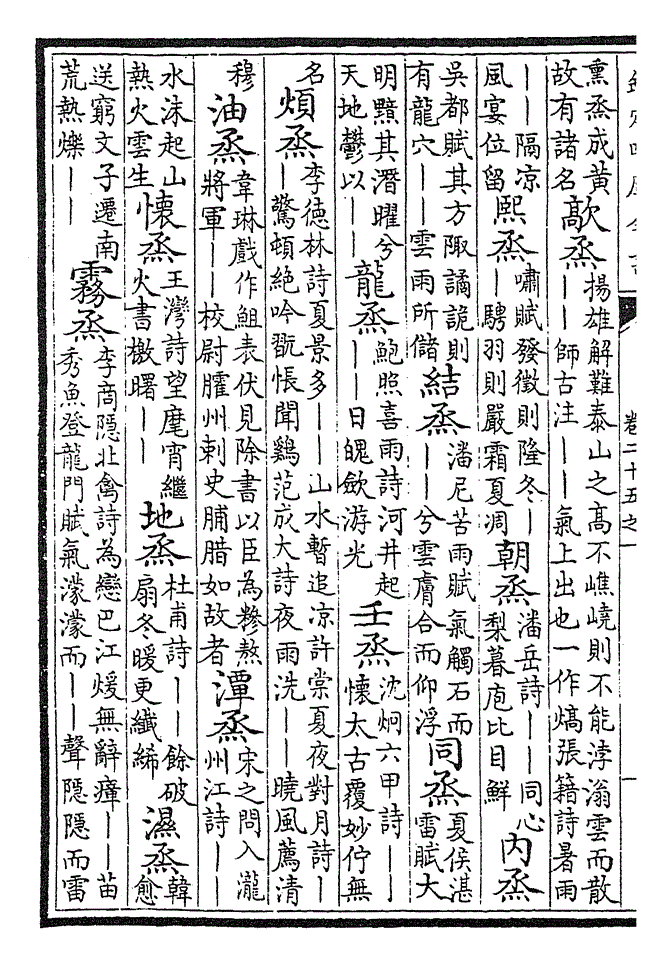 欽定四庫全書
卷二十五之一
熏烝成黄
故有諸名
歊烝
揚雄解難泰山之高不嶕嶢則不能浡滃雲而散
——師古注——氣上出也一作熇張籍詩暑雨
——隔凉
風宴位留
熙烝
嘯賦發徴則隆冬—
—騁羽則嚴霜夏凋
朝烝
潘岳詩——同心
梨暮庖比目鮮
內烝
吳都賦其方陬譎詭則
有龍穴——雲雨所儲
結烝
潘尼苦雨賦氣觸石而
——兮雲膚合而仰浮
同烝
夏侯湛
雷賦大
明黯其潛曜兮
天地鬱以——
龍烝
鮑照喜雨詩河井起
——日魄歛游光
壬烝
沈炯六甲詩——
懷太古覆妙佇無
名
煩烝
李德林詩夏景多——山水暫追凉許棠夏夜對月詩—
—驚頓絶吟翫悵聞鷄范成大詩夜雨洗——曉風薦清
穆
油烝
韋琳戲作䱇表伏見除書以臣為糝熬
將軍——校尉臛州刺史脯腊如故者
潭烝
宋之問入瀧
州江詩——
水沫起山
熱火雲生
懷烝
王灣詩望麾宵繼
火書檄曙——
地烝
杜甫詩——餘破
扇冬暖更纖絺
濕烝
韓
愈
送窮文子遷南
荒熱爍——
霧烝
李商隱北禽詩為戀巴江煖無辭瘴——苗
秀魚登龍門賦氣濛濛而——聲隱隱而雷